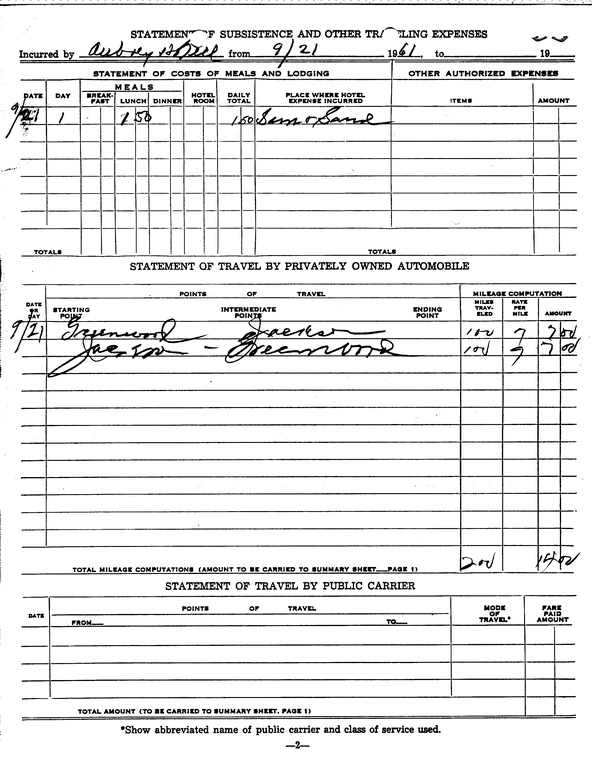 STATEMENT OF SUBSISTENCE AND OTHER TRAVELING EXPENSES
Incurred by Aubrey H Bell from 9/21 1961, to 19
STATEMENT OF COSTS OF MEALS AND LODGING OTHER AUTHORIZED EXPENSES
DATE DAY MEALS BREAK-FAST LUNCH DINNER HOTEL ROOM DAILY TOTAL PLACE WHERE HOTEL EXPENSE INCURRED ITEMS AMOUNT
9/21 1 1 50 1 50 Sam & Sand
TOTALS TOTALS
STATEMENT OF TRAVEL BY PRIVATELY OWNED AUTOMOBILE
POINTS OF TRAVEL MILEAGE COMPUTATION
DATE OR DAY STARTING POINT INTERMEDIATE POINTS ENDING POINT MILES TRAV-ELED RATE PER MILE AMOUNT
9/21 Greenwood Jackson 100 7 7 00
Jackson - Greenwood 100 7 7 00
TOTAL MILEAGE COMPUTATIONS (AMOUNT TO BE CARRIED TO SUMMARY SHEET—PAGE 1) 200 14 00
STATEMENT OF TRAVEL BY PUBLIC CARRIER
POINTS OF TRAVEL
DATE FROM— TO— MODE OF TRAVEL* FARE PAID AMOUNT
TOTAL AMOUNT (TO BE CARRIED TO SUMMARY SHEET, PAGE 1)
*Show abbreviated name of public carrier and class of service used.
—2—